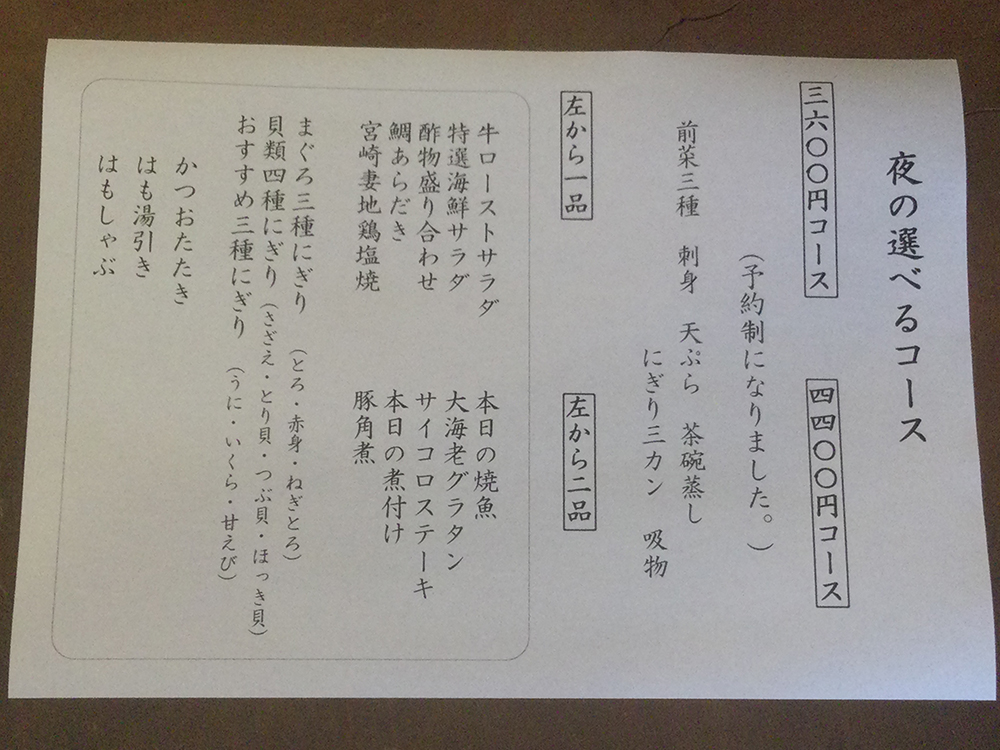 夜の選べるコース
三六〇〇円コース
四四〇〇円コース
（予約制になりました。）
前菜三種 刺身 天ぷら 茶碗蒸し
にぎり三カン 吸物
左から一品
左から二品
牛ローストサラダ
特選海鮮サラダ
酢物盛り合わせ
鯛あらだき
宮崎妻地鶏塩焼
本日の焼魚
大海老グラタン
サイコロステーキ
本日の煮付け
豚角煮
まぐろ三種にぎり（とろ・赤身・ねぎとろ）
貝類四種にぎり（さざえ・とり貝・つぶ貝・ほっき貝）
おすすめ三種にぎり（うに・いくら・甘えび）
かつおたたき
はも湯引き
はもしゃぶ